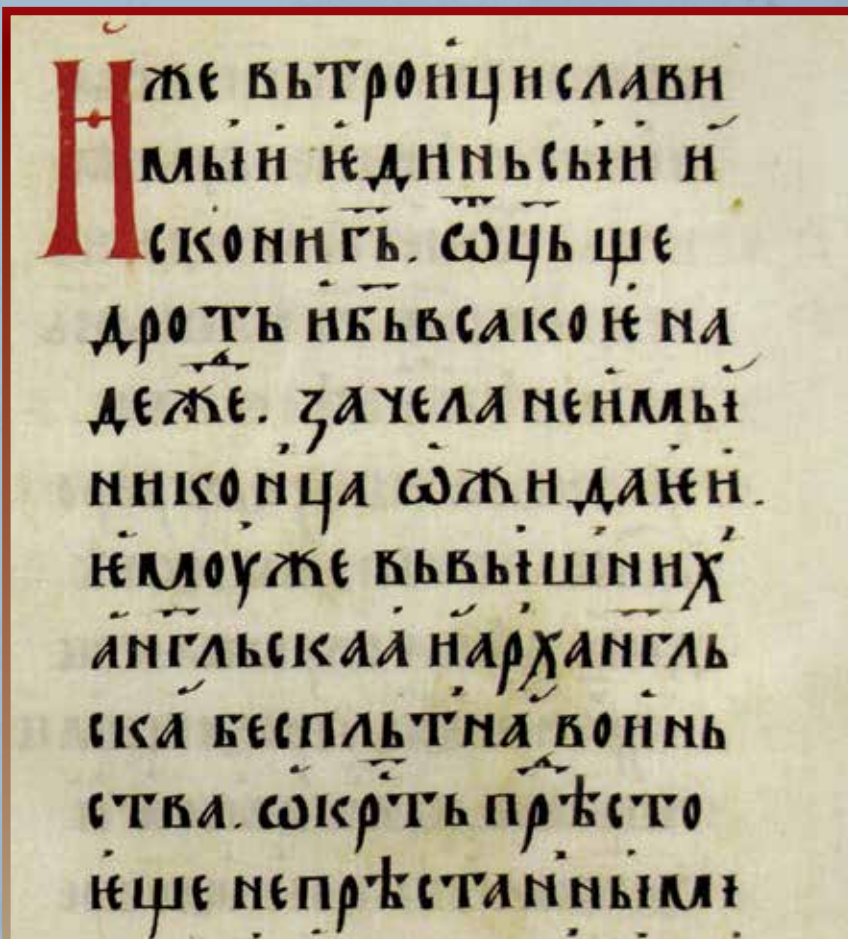 И҆же вьтрои҆цислави
мыиѝ ѥ҆динньсьıи и҆
сконигь̅. ѿц̅ь ще
дроть и҆б̅ьвсакоѥ҆ на
дежⷣе. Зачеланеи҆мьı
никои҆ца ѡ҆жидаѥ҆и.
ѥ҆моуже вьвьıшних̾
а҆нг̅льскаа̀ и҆архан̅гль
ска̀ беспльтна̀ вои҆нь
ства. ѡ҆крⷭ҇ть прⷣѣсто
ѥ҆ще непрѣстан̀ньıмı